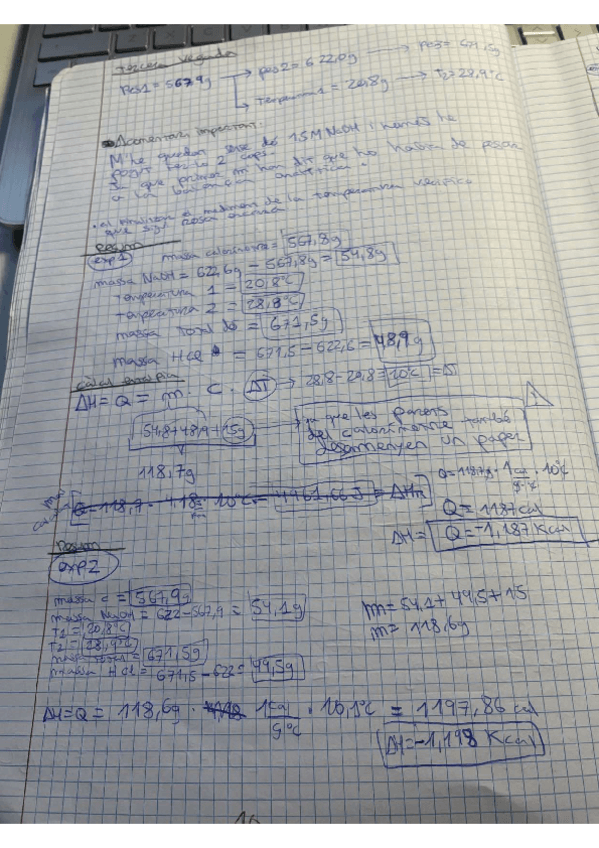 Tercera vegada
Pes1 = 567,9g → pes2 = 622,0g → pes3 = 671,5g
Temperatura 1 = 20,8g → T2 = 28,9°C
Comentari important:
M'he quedat sense de 1.5M NaOH i només he
pogut fer-lo 2 cops
Ja que primer m'han dit que ho havia de pesar
a la balança analítica.
de la temperatura
que sigui
Resum
exp1
massa calorímetre = 567,8g
massa NaOH = 622,6g - 567,8g = 54,8g
Temperatura 1 = 20,8°C
Temperatura 2 = 28,8°C
massa Total = 671,5g
massa HCl = 671,5 - 622,6 = 48,9g
càlcul entalpia
ΔH = Q = m · c · ΔT → 28,8 - 20,8 = 10°C = ΔT
54,8 + 48,9 + 15g → ja que les parets
del calorímetre també
desamenyen un paper
118,7g
Q = 118,7 · 4,18 · 10°C = 4961,66J = ΔHn
Q = 118,7g · 1 cal/g·°C · 10°C
Q = 1187 cal
ΔH = Q = -1,187 Kcal
Resum
exp2
massa c = 567,9g
massa NaOH = 622 - 567,9 = 54,1g
T1 = 20,8°C
T2 = 28,9°C
massa total = 671,5g
massa HCl = 671,5 - 622 = 49,5g
m = 54,1 + 49,5 + 15
m = 118,6g
ΔH = Q = 118,6g · 1cal/g°C · 10,1°C = 1197,86 cal
ΔH = -1,198 Kcal